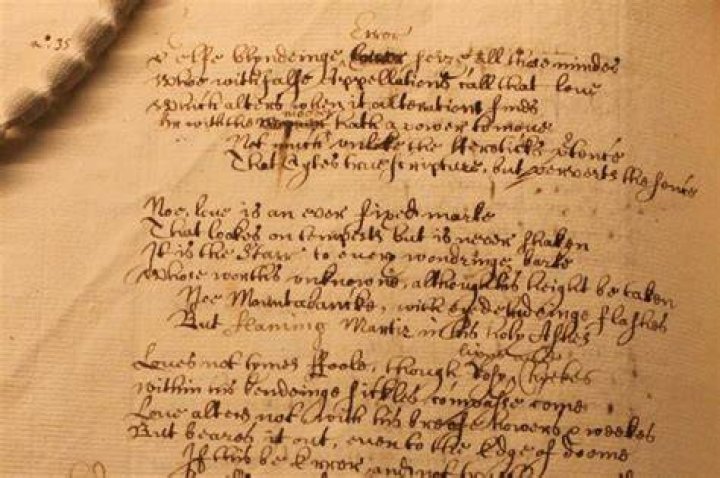 Error
n.º 35
selfe blyndeinge seize all those mindes
Whoe with false Appellations call that love
Which alters when it alterations finds
Or with the mover hath a power to move
Not much unlike the Heretick's
That Cytes true scripture, but perverts the sence
Noe, love is an ever fixed marke
That lookes on tempests but is never shaken
It is the Starr to every wandringe barke
Whose worth's unknowne, although his height be taken
Noe Mountabancke, with eie-deludeinge flashes
But flameing Martir in his holy Ashes
Loues not tymes ffoole, though Rosy Cheekes
lipps and
Within his bendeinge sickles compasse come
Love alters not with his breife howers & weekes
But beares it out, even to the Edge of doome
If this be Error and not